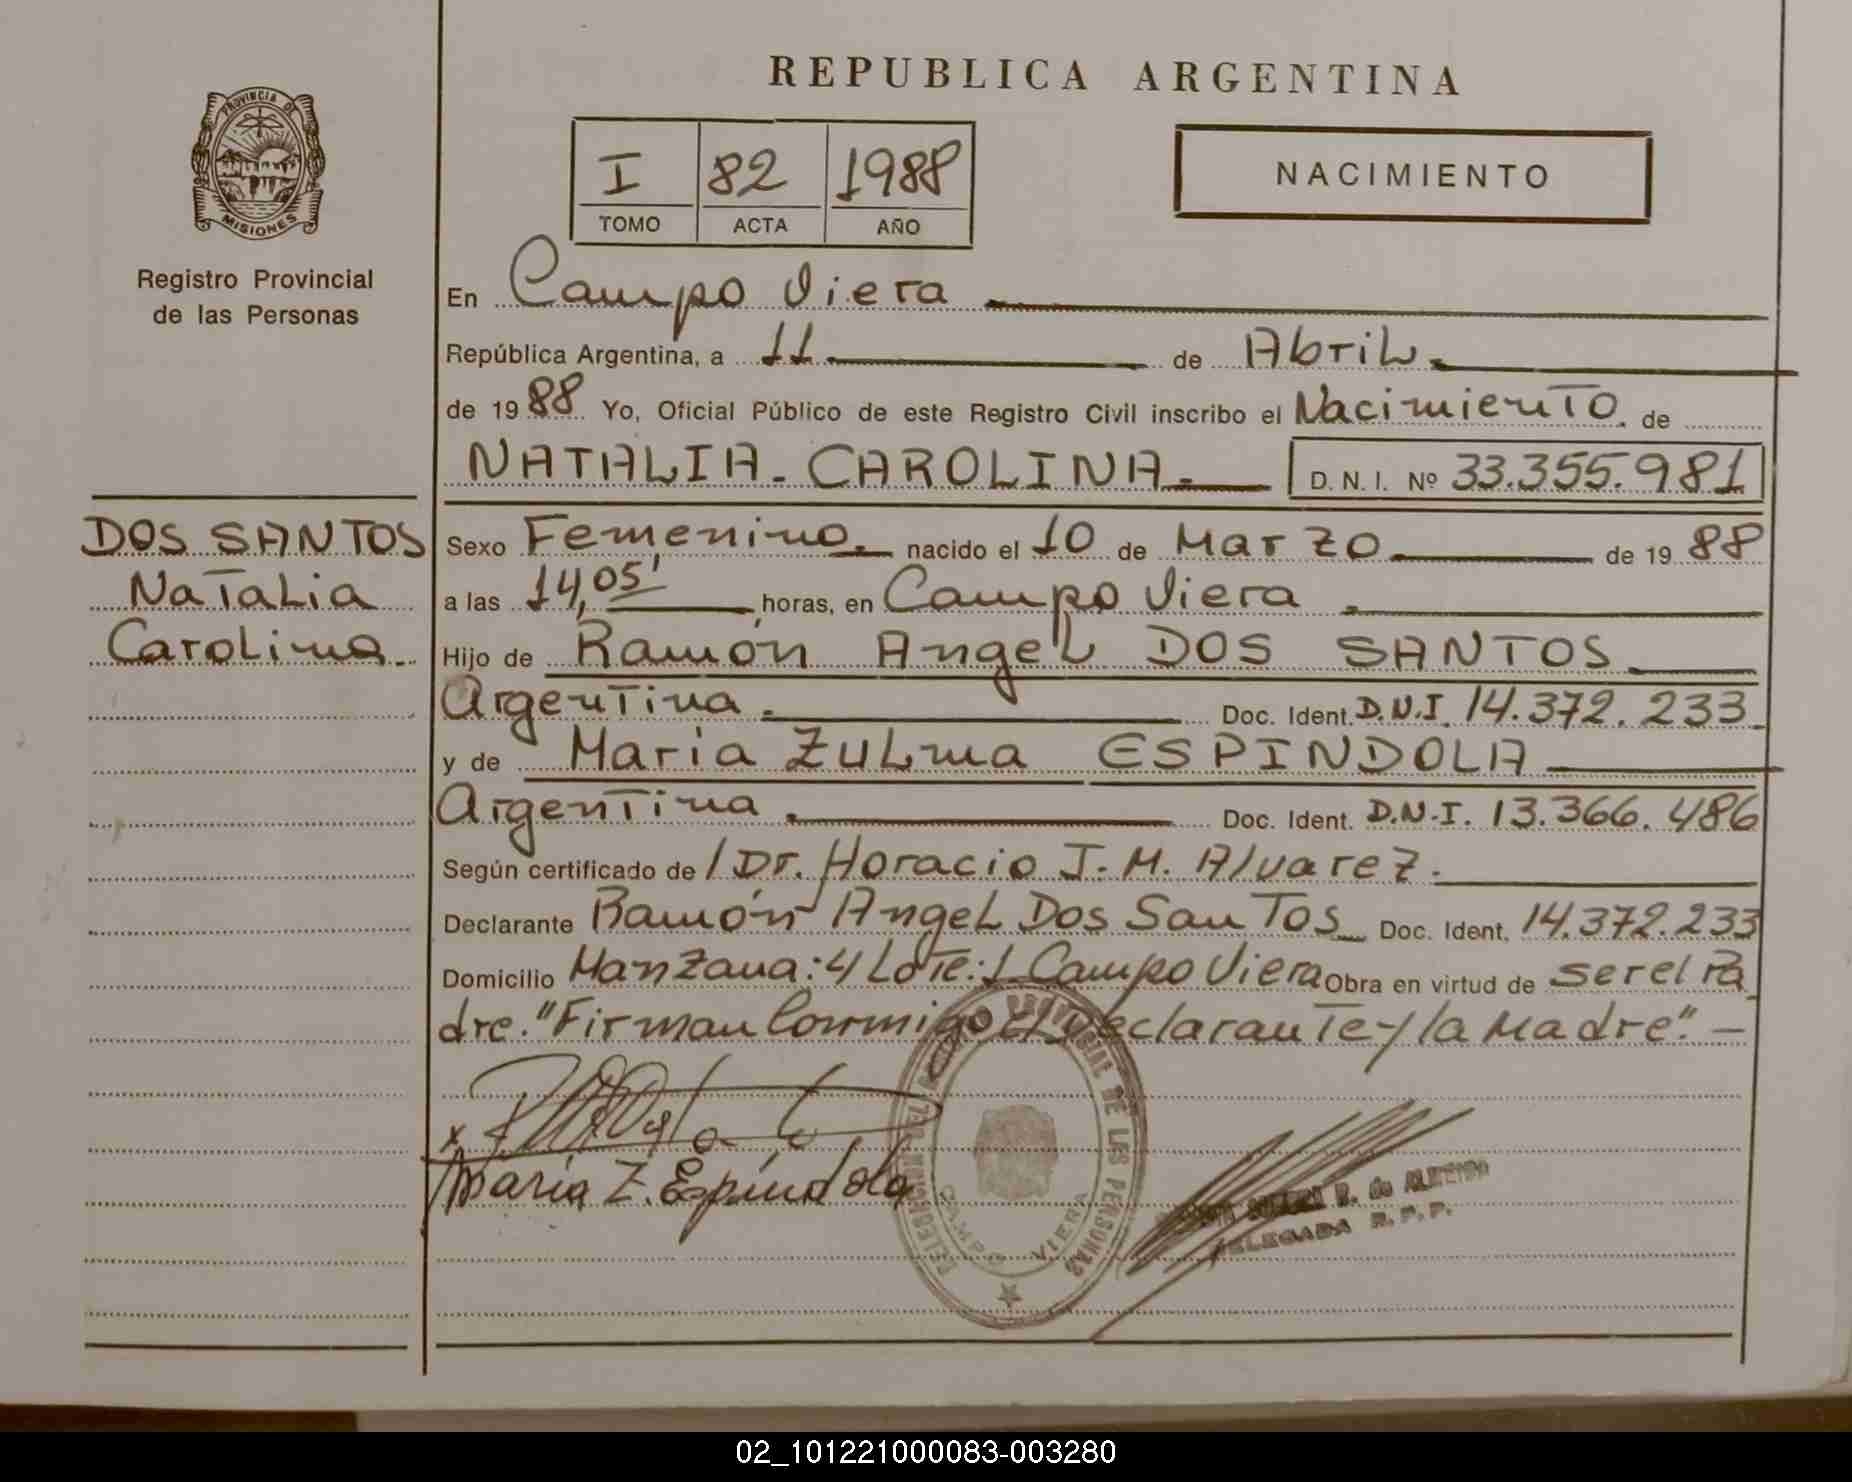 REPUBLICA ARGENTINA
PROVINCIA DE
MISIONES
Registro Provincial
de las Personas
I 82 1988
TOMO ACTA AÑO
NACIMIENTO
En Campo Viera
República Argentina, a 11 de Abril.
de 1988 Yo, Oficial Público de este Registro Civil inscribo el Nacimiento de
NATALIA. CAROLINA. D. N. I. Nº 33.355.981
DOS SANTOS
Natalia
Carolina.
Sexo Femenino. nacido el 10 de Marzo de 1988
a las 14,05' horas, en Campo Viera
Hijo de Ramón Angel DOS SANTOS.
Argentina. Doc. Ident. D.N.I. 14.372.233
y de Maria Zulma ESPINDOLA
Argentina. Doc. Ident. D.N.I. 13.366.486
Según certificado de / Dr. Horacio J. M. Alvarez.
Declarante Ramón Angel Dos Santos Doc. Ident. 14.372.233
Domicilio Manzana: 4 Lote: 1 Campo Viera Obra en virtud de ser el Pa
dre. "Firman Conmigo el Declarante y la Madre". -
Maria Z. Espíndola
PROVINCIAL DE LAS PERSONAS
CAMPO VIERA
R. de ALMEIDA
DELEGADA R. P. P.
02_101221000083-003280